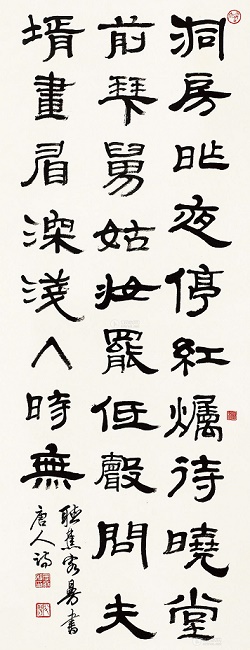 洞房昨夜停紅燭待曉堂
前拜舅姑妝罷低聲問夫
壻畫眉深淺入時無
書
唐人詩